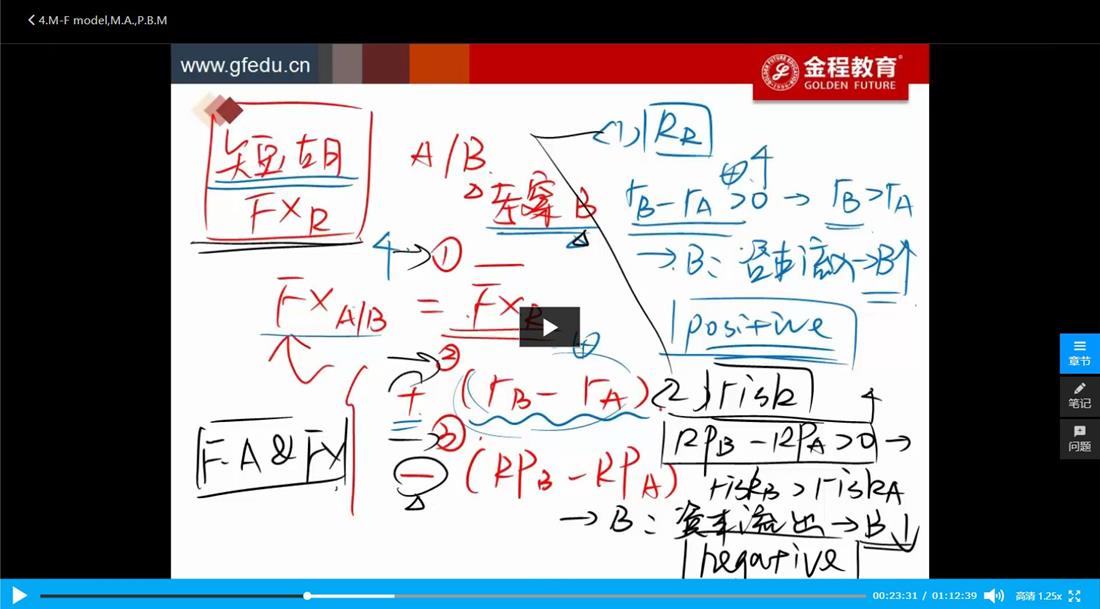 4.M-F model,M.A.,P.B.M
www.gfedu.cn
金程教育
GOLDEN FUTURE
短期
FX_R
A/B
答案 B
①
FX_A/B = FX_R
②
+ (r_B - r_A)
③
- (RP_B - RP_A)
F.A & FX
(1) R_R
r_B - r_A > 0 → r_B > r_A
→ B: 资本流入 → B↑
positive
(2) risk
RP_B - RP_A > 0 →
risk_B > risk_A
→ B: 资本流出 → B↓
negative
章节
笔记
问题
00:23:31 / 01:12:39
高清 1.25x